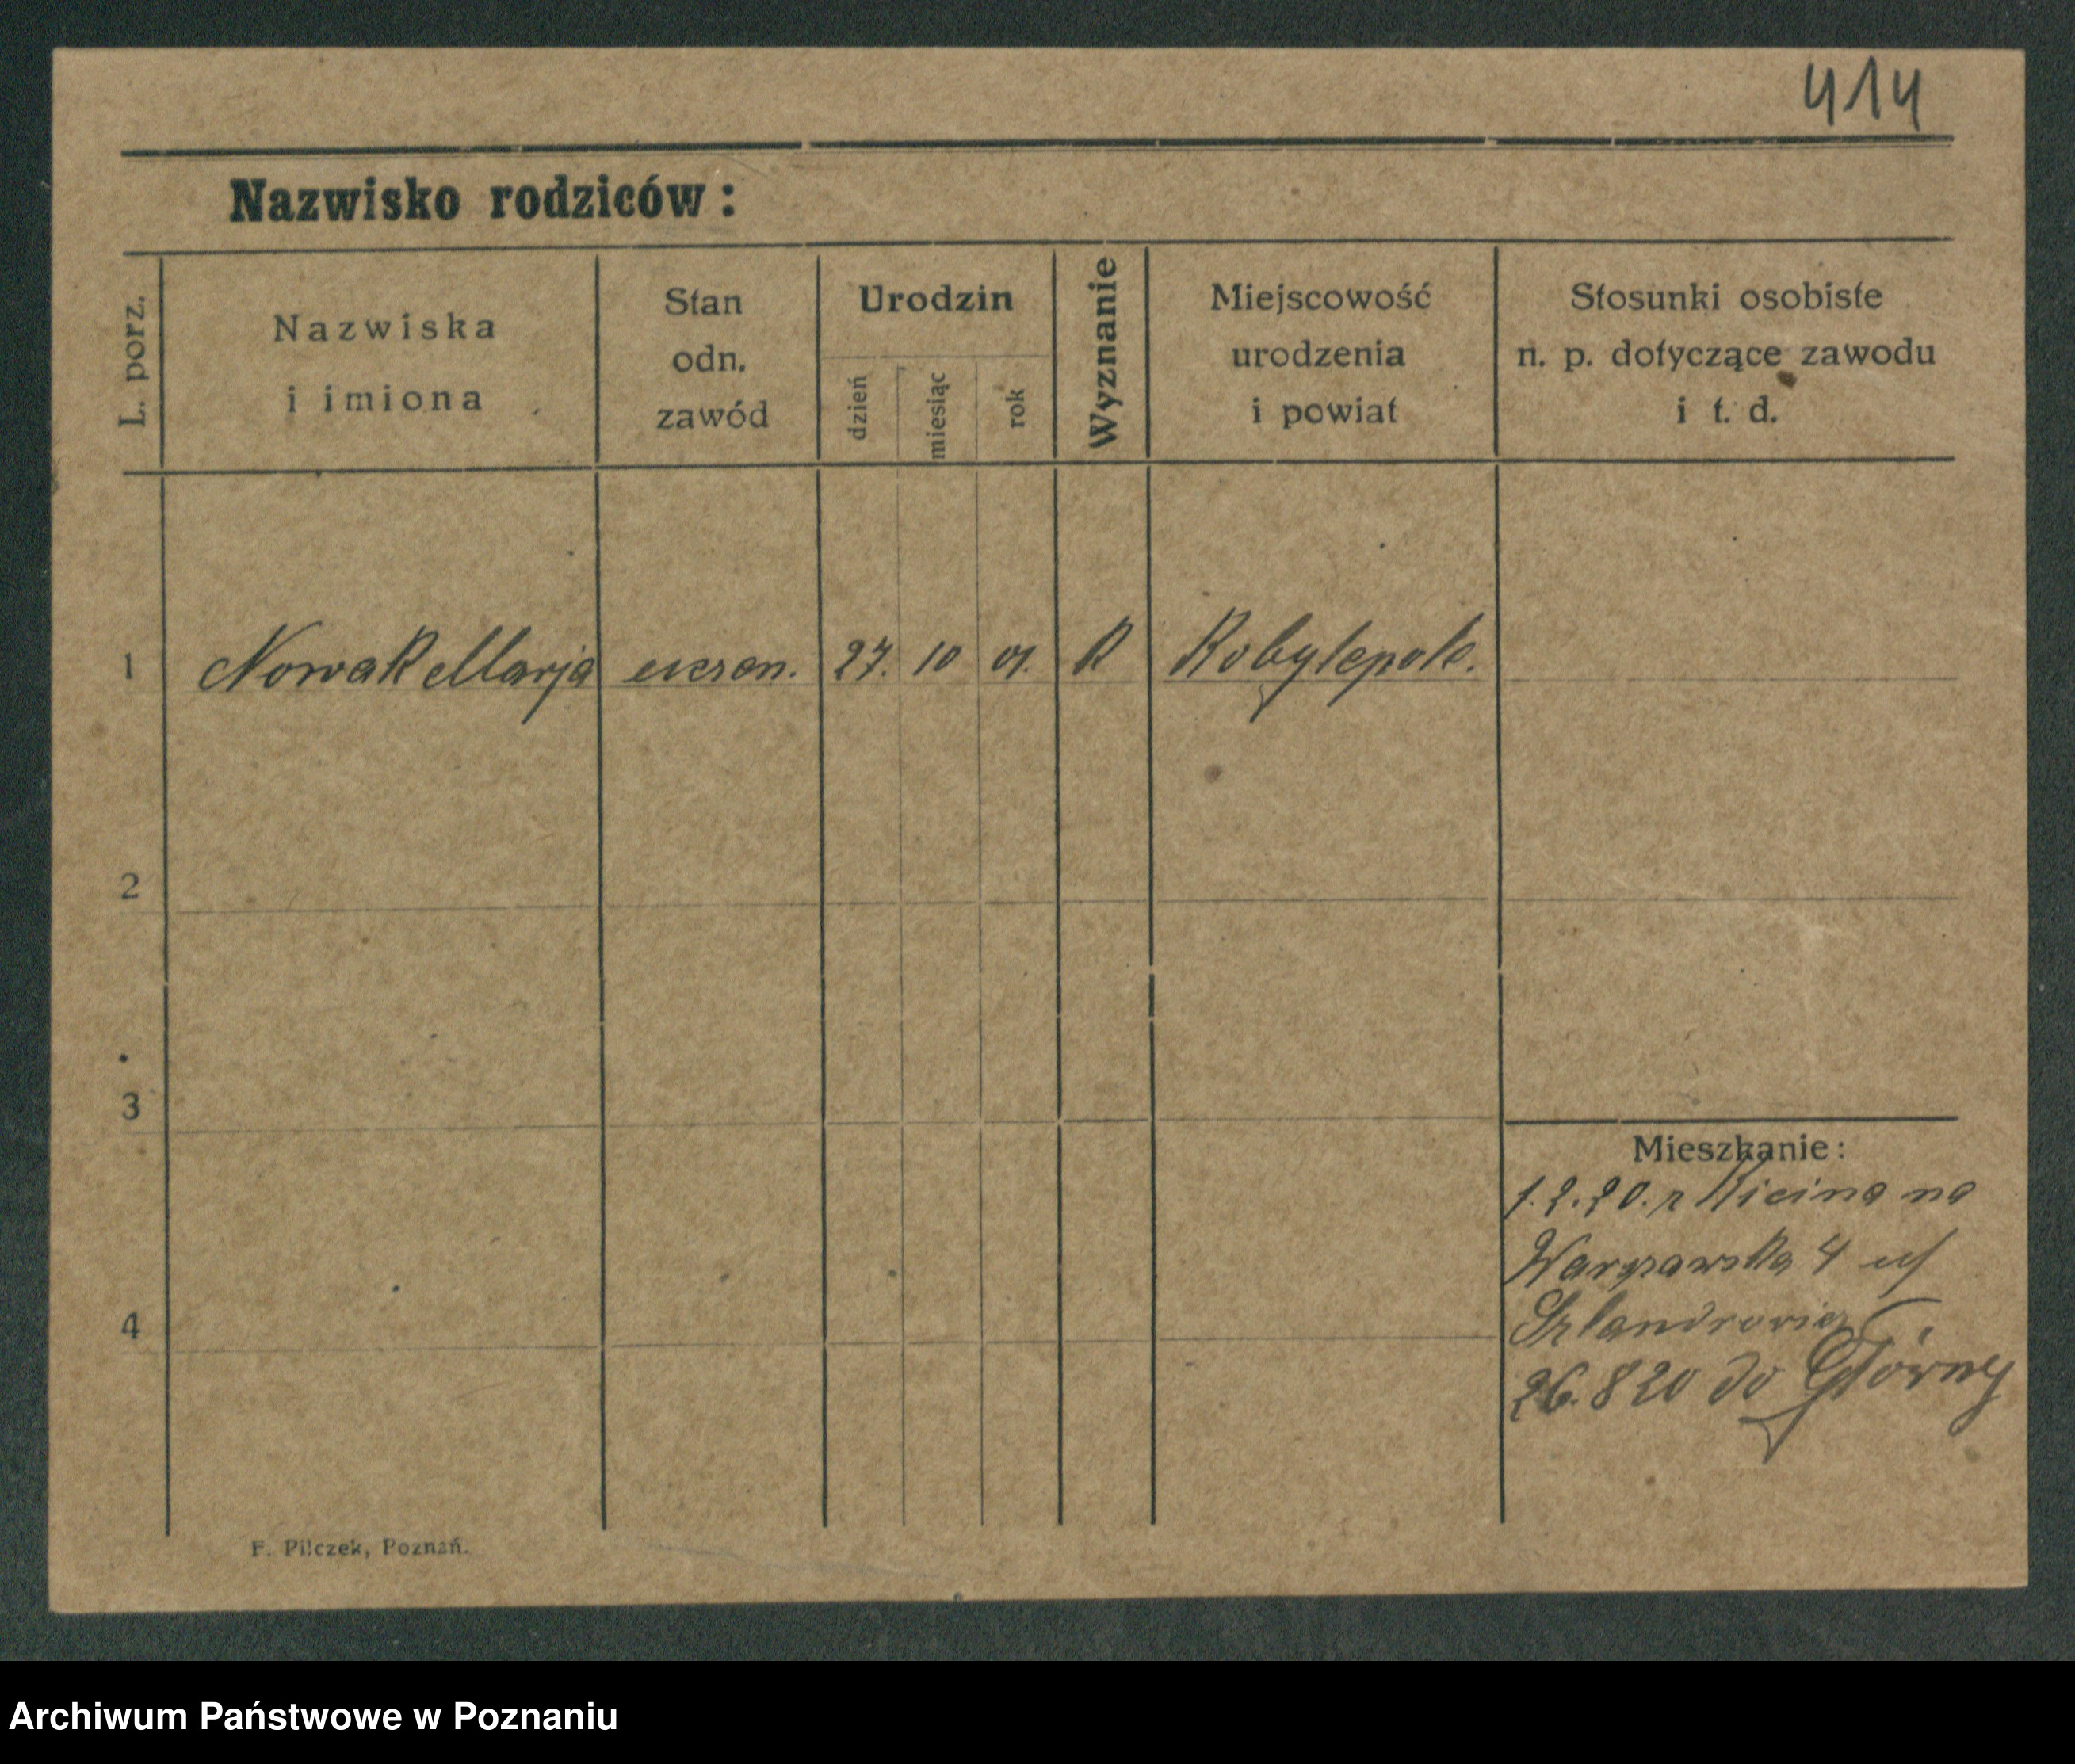 414
Nazwisko rodziców:
L. porz.
Nazwiska
i imiona
Stan
odn.
zawód
Urodzin
dzień
miesiąc
rok
Wyznanie
Miejscowość
urodzenia
i powiat
Stosunki osobiste
n. p. dotyczące zawodu
i t. d.
1 Nowak Marja uczen. 27. 10 01. K Kobylepole.
2
3
4
Mieszkanie:
1.2.20. z Kicina na
Warszawska 4
26.8 20 do Główny
F. Pilczek, Poznań.
Archiwum Państwowe w Poznaniu